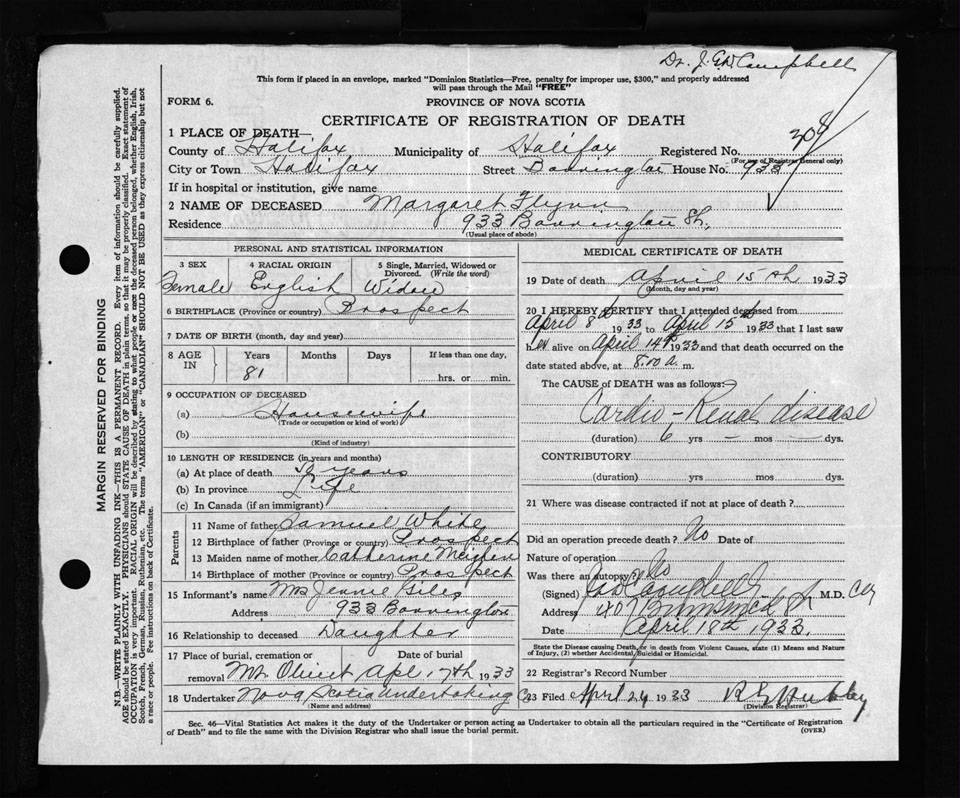 Dr. J. G. W. Campbell
This form if placed in an envelope, marked "Dominion Statistics—Free, penalty for improper use, $300," and properly addressed
will pass through the Mail "FREE"
FORM 6.
PROVINCE OF NOVA SCOTIA
CERTIFICATE OF REGISTRATION OF DEATH
1 PLACE OF DEATH—
County of Halifax Municipality of Halifax Registered No.
(For use of Registrar General only)
City or Town Halifax Street Barrington House No. 933
If in hospital or institution, give name
2 NAME OF DECEASED Margaret Flynn
Residence 933 Barrington St.
(Usual place of abode)
PERSONAL AND STATISTICAL INFORMATION
3 SEX 4 RACIAL ORIGIN 5 Single, Married, Widowed or
Divorced. (Write the word)
Female English Widow
6 BIRTHPLACE (Province or country) Prospect
7 DATE OF BIRTH (month, day and year)
8 AGE IN Years Months Days If less than one day,
81 hrs. or min.
9 OCCUPATION OF DECEASED
(a) Housewife
(Trade or occupation or kind of work)
(b)
(Kind of industry)
10 LENGTH OF RESIDENCE (in years and months)
(a) At place of death years
(b) In province Life
(c) In Canada (if an immigrant)
Parents
11 Name of father Samuel White
12 Birthplace of father (Province or country) Prospect
13 Maiden name of mother Catherine
14 Birthplace of mother (Province or country) Prospect
15 Informant's name Mrs Jennie Giles
Address 933 Barrington
16 Relationship to deceased Daughter
17 Place of burial, cremation or Date of burial
removal Mt Olivet Apl 17th 1933
18 Undertaker Nova Scotia Undertaking Co
(Name and address)
MEDICAL CERTIFICATE OF DEATH
19 Date of death April 15th 1933
(Month, day and year)
20 I HEREBY CERTIFY that I attended deceased from
April 8th 1933 to April 15th 1933 that I last saw
her alive on April 14th 1933 and that death occurred on the
date stated above, at 8.00 a. m.
The CAUSE OF DEATH was as follows:
Cardio-Renal disease
(duration) 6 yrs – mos – dys.
CONTRIBUTORY
(duration) yrs mos dys.
21 Where was disease contracted if not at place of death?
Did an operation precede death? No Date of
Nature of operation
Was there an autopsy? No
(Signed) Campbell M.D.
Address 407
Date April 18th, 1933.
State the Disease causing Death, or in death from Violent Causes, state (1) Means and Nature
of Injury, (2) whether Accidental, Suicidal or Homicidal.
22 Registrar's Record Number
23 Filed April 24 1933
(Division Registrar)
Sec. 46—Vital Statistics Act makes it the duty of the Undertaker or person acting as Undertaker to obtain all the particulars required in the "Certificate of Registration
of Death" and to file the same with the Division Registrar who shall issue the burial permit.
(OVER)
MARGIN RESERVED FOR BINDING
N.B.—WRITE PLAINLY WITH UNFADING INK—THIS IS A PERMANENT RECORD. Every item of information should be carefully supplied.
AGE should be stated EXACTLY. PHYSICIANS should STATE CAUSE OF DEATH in plain terms, so that it may be properly classified. Exact statement of
OCCUPATION is very important. RACIAL ORIGIN will be described by stating to what people or race the deceased person belonged, whether English, Irish,
Scotch, French, German, Russian, Ruthenian, etc. The terms "AMERICAN" or "CANADIAN" SHOULD NOT BE USED as they express citizenship but not
a race or people. Fee instructions on back of Certificate.